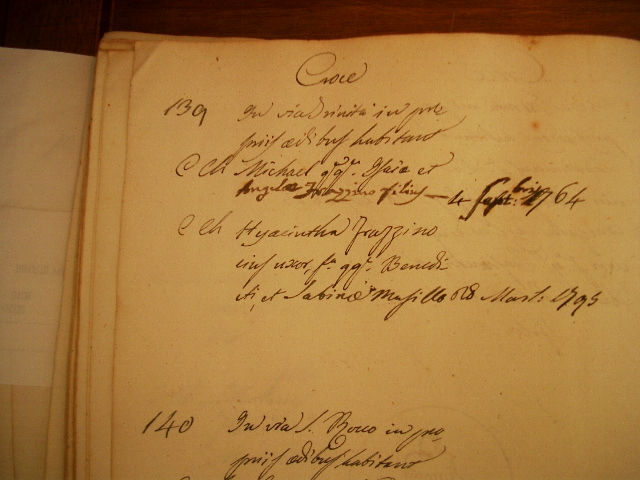 Croce
139 In via Trinità in pro
priis ædibus habitant
C Ch Michael qqr. Isaiæ et
Angelæ Frazzino filius — 4 Sept:bris 1764
C Ch Hyacintha Frazzino
eius uxor, fa. qqr. Benedi
cti, et Sabinæ Masillo Mart: 1795
140 In via S. Rocco in pro
priis ædibus habitant